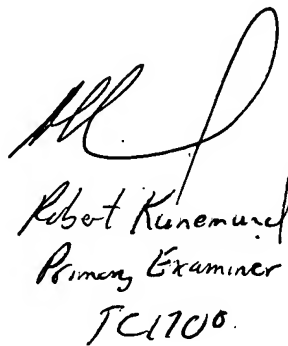 Robert Kunemund
Primary Examiner
TC1700.